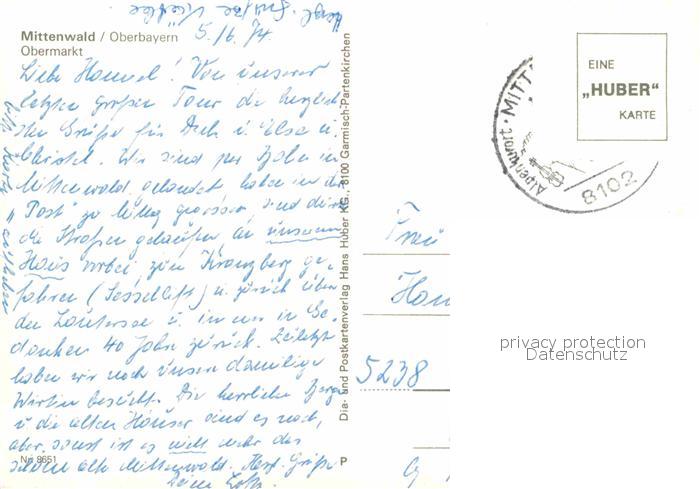 Herzl. Grüße
Mittenwald / Oberbayern
Obermarkt
5./6. 74
Liebe Hannel! Von unserer
letzten großen Tour die herzlich-
sten Grüße für Dich u. Ilse u.
Christel. Wir sind per Bahn in
Mittenwald gelandet haben in der
"Post" zu Mittag gegessen und durch
die Straßen gelaufen an unserem
Haus vorbei zum Kranzberg ge-
fahren (Sessellift) u. zurück über
den Lautersee u. immer in Ge-
danken 40 Jahre zurück. Zuletzt
haben wir noch unsere damalige
Wirtin besucht. Die herrlichen Berge
u. die alten Häuser sind es noch,
aber sonst ist es nicht mehr das
schöne alte Mittenwald. Herzl. Grüße
Deine
Nr. 8651
Dia- und Postkartenverlag Hans Huber KG., 8100 Garmisch-Partenkirchen
P
EINE
„HUBER“
KARTE
Alpenkurort · MITT
8102
Frau
Han
5238
privacy protection
Datenschutz